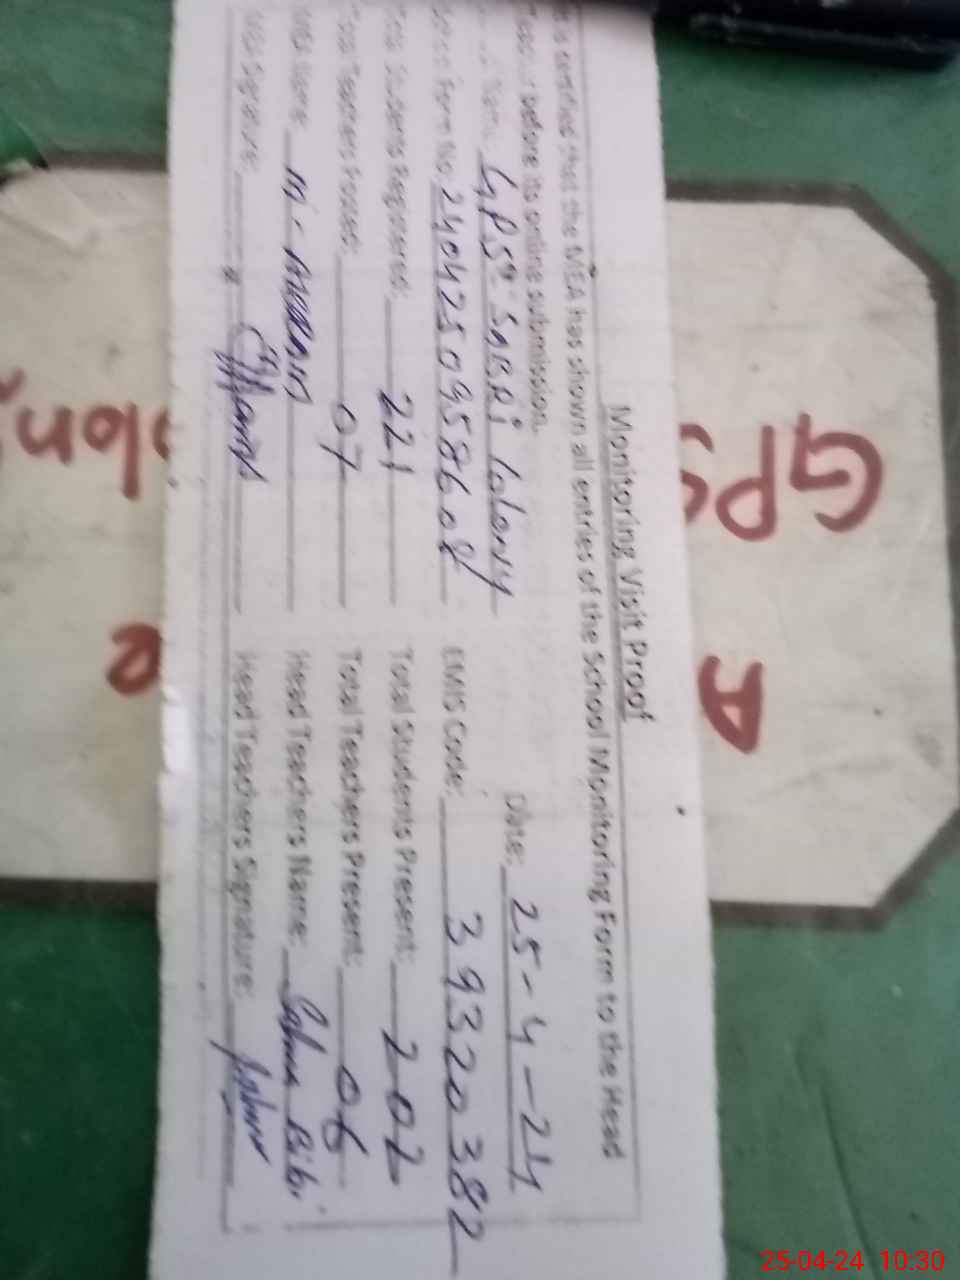 Monitoring Visit Proof
It is certified that the MEA has shown all entries of the School Monitoring Form to the Head
Teacher before its online submission.
Name: GPS Sabri Colony Date: 25-4-24
Form No. EMIS Code: 39320382
Total Students Registered: 221 Total Students Present: 202
Total Teachers Posted: 07 Total Teachers Present: 06
MEA Name: Head Teachers Name: Bibi
MEA Signature: Head Teachers Signature:
GPS
A
25-04-24 10:30